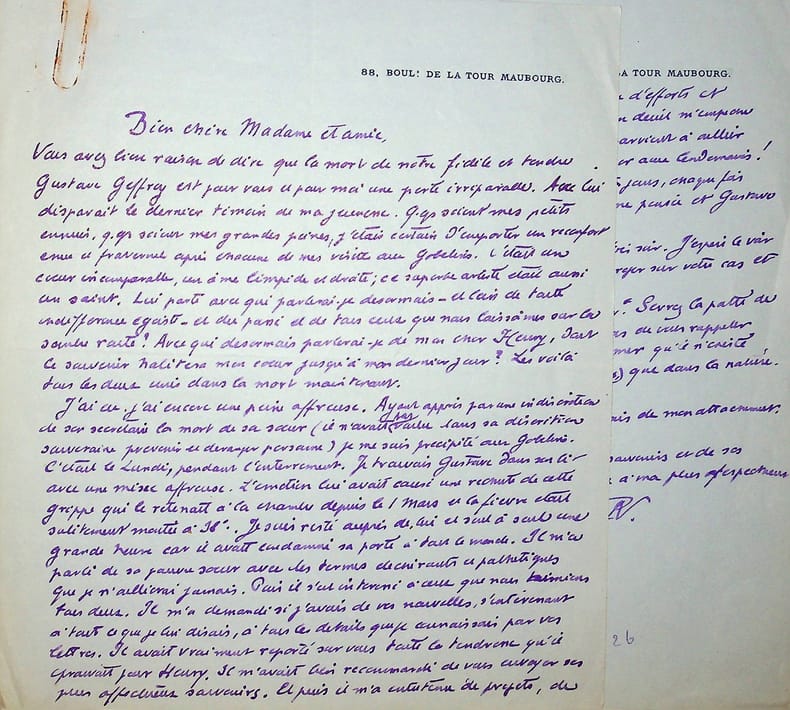 88, BOUL! DE LA TOUR MAUBOURG.
Bien chère Madame et amie,
Vous avez bien raison de dire que la mort de notre fidèle et tendre
Gustave Geffroy est pour vous et pour moi une perte irréparable. Avec lui
disparait le dernier témoin de ma jeunesse. Q.qqs soient mes petits
ennuis, q.qqs soient mes grandes peines, j'étais certain d'emporter un réconfort
ému et fraternel après chacune de mes visites aux Gobelins. C'était un
cœur incomparable, un âme limpide et droite; ce superbe artiste était aussi
un saint. Lui parti avec qui parlerai-je désormais - et loin de toute
indifférence égoïste - et du passé et de tous ceux que nous laissâmes sur la
sombre route? Avec qui désormais parlerai-je de mon cher Henry, dont
le souvenir habitera mon cœur jusqu'à mon dernier jour? Les voilà
tous les deux unis dans la mort maintenant.
J'ai eu, j'ai encore une peine affreuse. Ayant appris par une indiscrétion
de son secrétaire la mort de sa sœur (il n'avait pas voulu dans sa discrétion
souveraine prévenir et déranger personne) je me suis précipité aux Gobelins.
C'était le Lundi, pendant l'enterrement. Je trouvais Gustave dans son lit
avec une mine affreuse. L'émotion lui avait causé une rechute de cette
grippe qui le retenait à la chambre depuis le 1 Mars et la fièvre était
subitement montée à 38°.. Je suis resté auprès de lui et seul à seul une
grande heure car il avait condamné sa porte à tout le monde. Il m'a
parlé de sa pauvre sœur avec des termes déchirants et pathétiques
que je n'oublierai jamais. Puis il s'est interessé à ceux que nous aimions
tous deux. Il m'a demandé si j'avais de vos nouvelles, s'intéressant
à tout ce que je lui disais, à tous les détails que je connaissais par vos
lettres. Il avait vraiment reporté sur vous toute la tendresse qu'il
éprouvait pour Henry. Il m'avait bien recommandé de vous envoyer ses
plus affectueux souvenirs. Et puis il m'a entretenu de projets, de
LA TOUR MAUBOURG.
d'efforts et
deuil m'empêche
parvient à
lendemains!
jours, chaque fois
pensée et Gustave
soir. J'espère le voir
sur votre cas et
Serrez la patte de
de vous rappeler
qu'il n'existe
que dans la nature.
de mon attachement.
souvenirs et de ses
à ma plus respectueuse
26